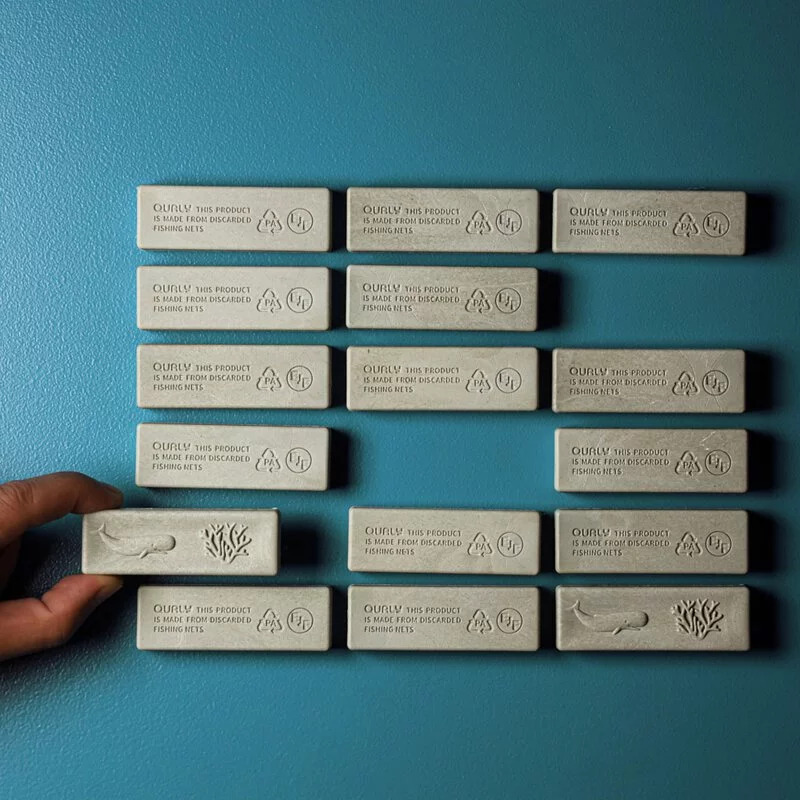 QURLY THIS PRODUCT
IS MADE FROM DISCARDED
FISHING NETS
PA EJF
QURLY THIS PRODUCT
IS MADE FROM DISCARDED
FISHING NETS
PA EJF
QURLY THIS PRODUCT
IS MADE FROM DISCARDED
FISHING NETS
PA EJF
QURLY THIS PRODUCT
IS MADE FROM DISCARDED
FISHING NETS
PA EJF
QURLY THIS PRODUCT
IS MADE FROM DISCARDED
FISHING NETS
PA EJF
QURLY THIS PRODUCT
IS MADE FROM DISCARDED
FISHING NETS
PA EJF
QURLY THIS PRODUCT
IS MADE FROM DISCARDED
FISHING NETS
PA EJF
QURLY THIS PRODUCT
IS MADE FROM DISCARDED
FISHING NETS
PA EJF
QURLY THIS PRODUCT
IS MADE FROM DISCARDED
FISHING NETS
PA EJF
QURLY THIS PRODUCT
IS MADE FROM DISCARDED
FISHING NETS
PA EJF
QURLY THIS PRODUCT
IS MADE FROM DISCARDED
FISHING NETS
PA EJF
QURLY THIS PRODUCT
IS MADE FROM DISCARDED
FISHING NETS
PA EJF
QURLY THIS PRODUCT
IS MADE FROM DISCARDED
FISHING NETS
PA EJF
QURLY THIS PRODUCT
IS MADE FROM DISCARDED
FISHING NETS
PA EJF